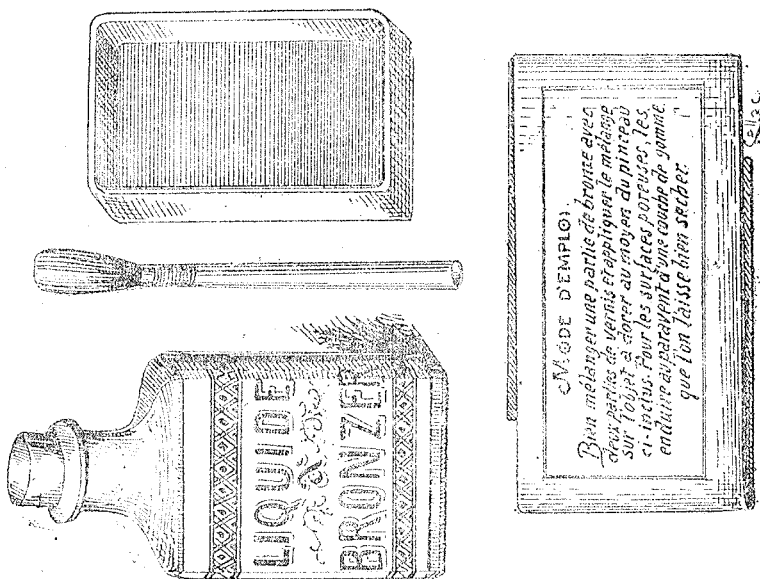 LIQUIDE
BRONZE
MODE D'EMPLOI.
Bien mélanger une partie de bronze avec
deux parties de vernis et appliquer le mélange
sur l'objet à dorer au moyen du pinceau
ci-inclus. Pour les surfaces poreuses, les
enduire auparavent d'une couche de gomme
que l'on laisse bien sécher.